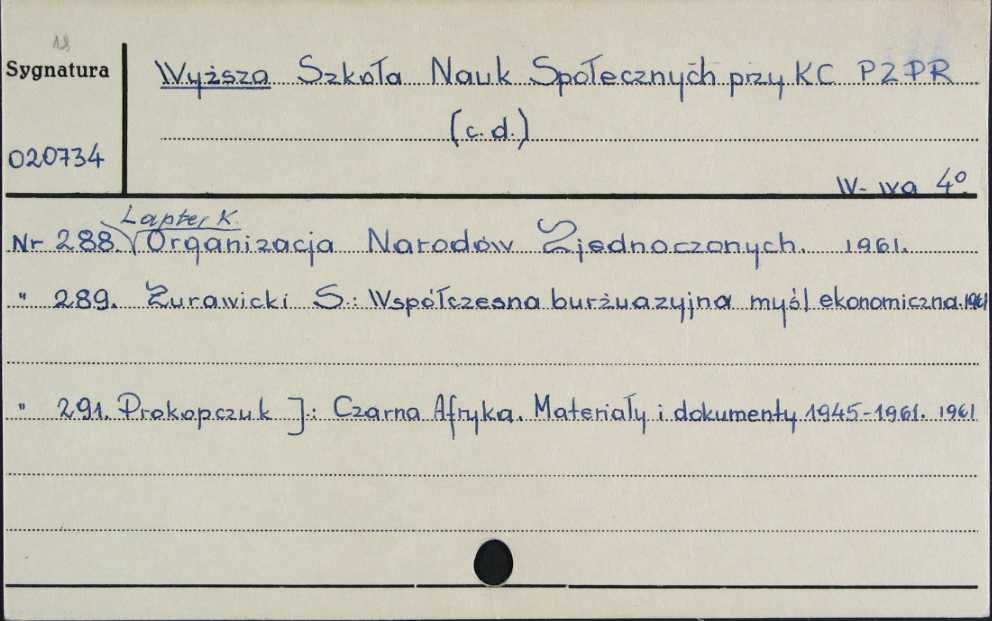 18
Sygnatura
Wyższa Szkoła Nauk Społecznych przy KC PZPR
(c. d.)
020734
W-wa 4º
Lapter K.
Nr 288. Organizacja Narodów Zjednoczonych. 1961.
" 289. Żurawicki S.: Współczesna burżuazyjna myśl ekonomiczna. 1961
" 291. Prokopczuk J.: Czarna Afryka. Materiały i dokumenty 1945-1961. 1961